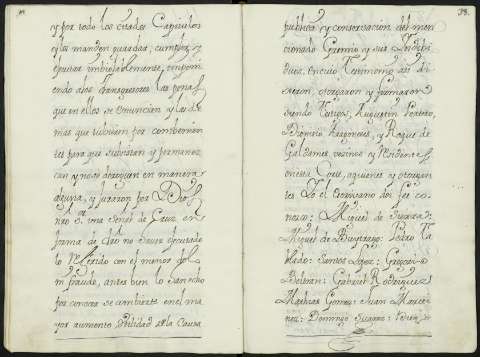 y por todo los citados Capitulos
y los manden guardar, cumplir y
executar imbiolablemente, imponi
endo alos transgresores las penas
que en ellos se enuncian y las de
mas que tubieren por combenien
tes para que subsistan y permanez
can y no se deroguen en manera
alguna, y juraron por Dios
nro Sr. una señal de Cruz en
forma de dro no haver ejecutado
lo referido con el menor dolo
ni fraude, antes bien lo han echo
por conocer se combierte en el ma
yor aumento utilidad dela Causa
38.
publica y conservacion del men
cionado Gremio y sus Indibi
duos, en cuio testimonio asi di
xeron, otorgaron y firmaron
siendo testigos, Augustin
Dionisio Aragoneses, y Roque de
Galdames, vecinos y residentes
en esta Corte, aquienes y otorgan
tes Yo el Escrivano doi fee co
nozco: Miguel de Suarez:
Miguel de Buytrago: Pedro Ta
blado: Santos Lopez: Gregorio
Beltran: Gabriel Rodriguez
Mathias Gomez: Juan
nez: Domingo Suarez: